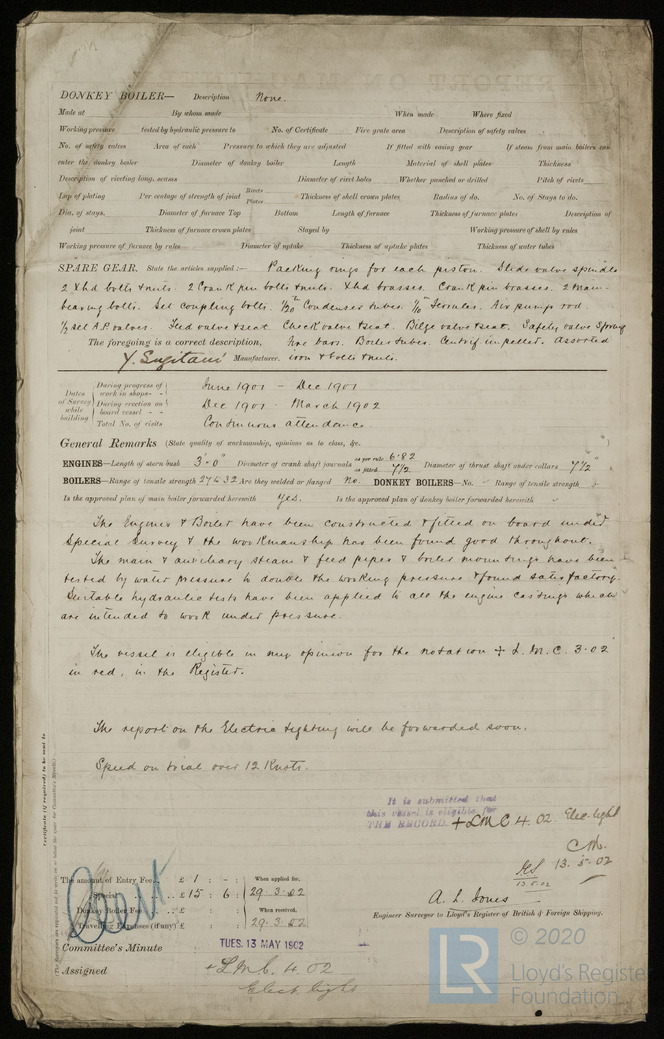 DONKEY BOILER— Description None.
Made at By whom made When made Where fixed
Working pressure tested by hydraulic pressure to No. of Certificate Fire grate area Description of safety valves
No. of safety valves Area of each Pressure to which they are adjusted If fitted with easing gear If steam from main boilers can
enter the donkey boiler Diameter of donkey boiler Length Material of shell plates Thickness
Description of riveting long. seams Diameter of rivet holes Whether punched or drilled Pitch of rivets
Lap of plating Per centage of strength of joint Rivets Plates Thickness of shell crown plates Radius of do. No. of Stays to do.
Dia. of stays. Diameter of furnace Top Bottom Length of furnace Thickness of furnace plates Description of
joint Thickness of furnace crown plates Stayed by Working pressure of shell by rules
Working pressure of furnace by rules Diameter of uptake Thickness of uptake plates Thickness of water tubes
SPARE GEAR. State the articles supplied:— Packing rings for each piston. Slide valve spindle
2 Xhd bolts & nuts. 2 Crank pin bolts & nuts. Xhd brasses. Crank pin brasses. 2 Main
bearing bolts. Set coupling bolts. 1/20th Condenser tubes 1/10th Ferrules. Air pump rod
1/2 set A.P. valves. Feed valve & seat Check valve & seat. Bilge valve & seat. Safety valve Spring
The foregoing is a correct description, Fire bars. Boiler tubes. Centrif impeller. Assorted
Y. Sugitani Manufacturer. iron & bolts & nuts.
Dates of Survey while building
During progress of work in shops - - June 1901 - Dec 1901
During erection on board vessel - - Dec 1901 - March 1902
Total No. of visits Continuous attendance
General Remarks (State quality of workmanship, opinions as to class, &c.
ENGINES—Length of stern bush 3'-0" Diameter of crank shaft journals as per rule 6.82 as fitted 7 1/2 Diameter of thrust shaft under collars 7 1/2"
BOILERS—Range of tensile strength 27 & 32 Are they welded or flanged No. DONKEY BOILERS—No. Range of tensile strength
Is the approved plan of main boiler forwarded herewith Yes. Is the approved plan of donkey boiler forwarded herewith
The Engines & Boiler have been constructed & fitted on board under
Special Survey & the workmanship has been found good throughout.
The main & auxiliary steam & feed pipes & boiler mountings have been
tested by water pressure to double the working pressure & found satisfactory.
Suitable hydraulic tests have been applied to all the engine castings which
are intended to work under pressure.
The vessel is eligible in my opinion for the notation + L.M.C. 3.02
in red, in the Register.
The report on the Electric Lighting will be forwarded soon.
Speed on trial over 12 Knots.
It is submitted that
this vessel is eligible for
THE RECORD. + LMC 4.02. Elec. light
C.M.
13.5.02
13.5.02
The amount of Entry Fee.. £ 1 : - : When applied for,
Special .. .. £ 15 : 6 : 29.3.02
Donkey Boiler Fee .. £ : : When received,
Travelling Expenses (if any) £ : : 29.3.02
A. L. Jones
Engineer Surveyor to Lloyd's Register of British & Foreign Shipping.
Committee's Minute TUES. 13 MAY 1902
Assigned + L.M.C. 4.02
Elect. light
Certificate (if required) to be sent to
LR © 2020
Lloyd's Register
Foundation